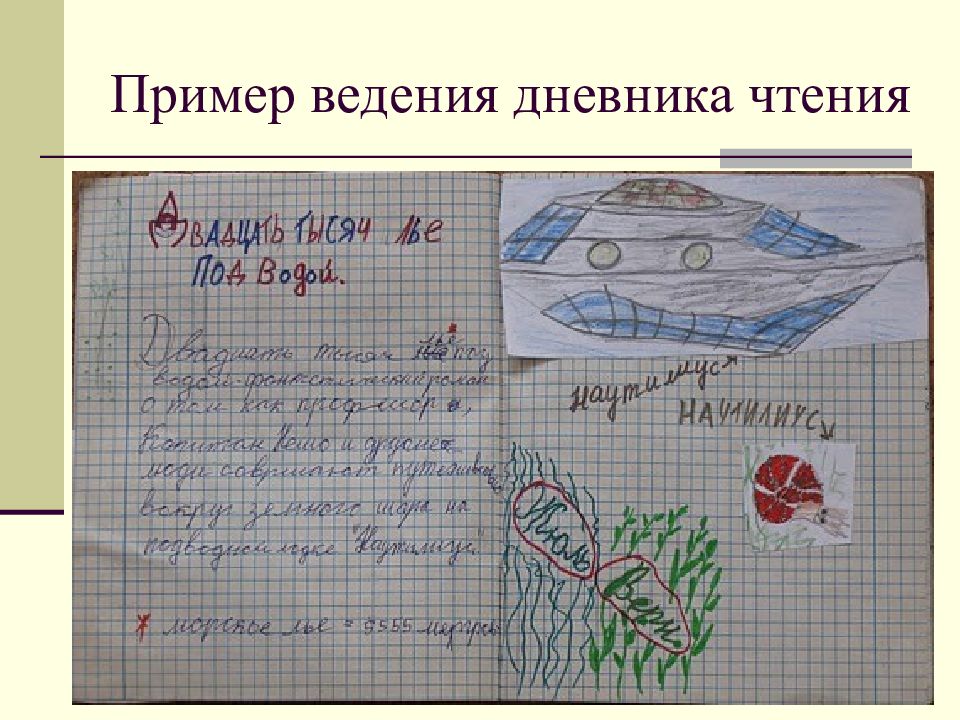 Пример ведения дневника чтения
ДВАДЦАТЬ ТЫСЯЧ ЛЬЕ
ПОД ВОДОЙ.
Двадцать тысяч лье* под
водой - фантастический роман
о том как профессор,
Капитан Немо и другие
люди совершают путешествие
вокруг земного шара на
подводной лодке "Наутилиус"
* морское лье = 5555 метров
Наутилиус
НАУТИЛИУС
Жюль
Верн.